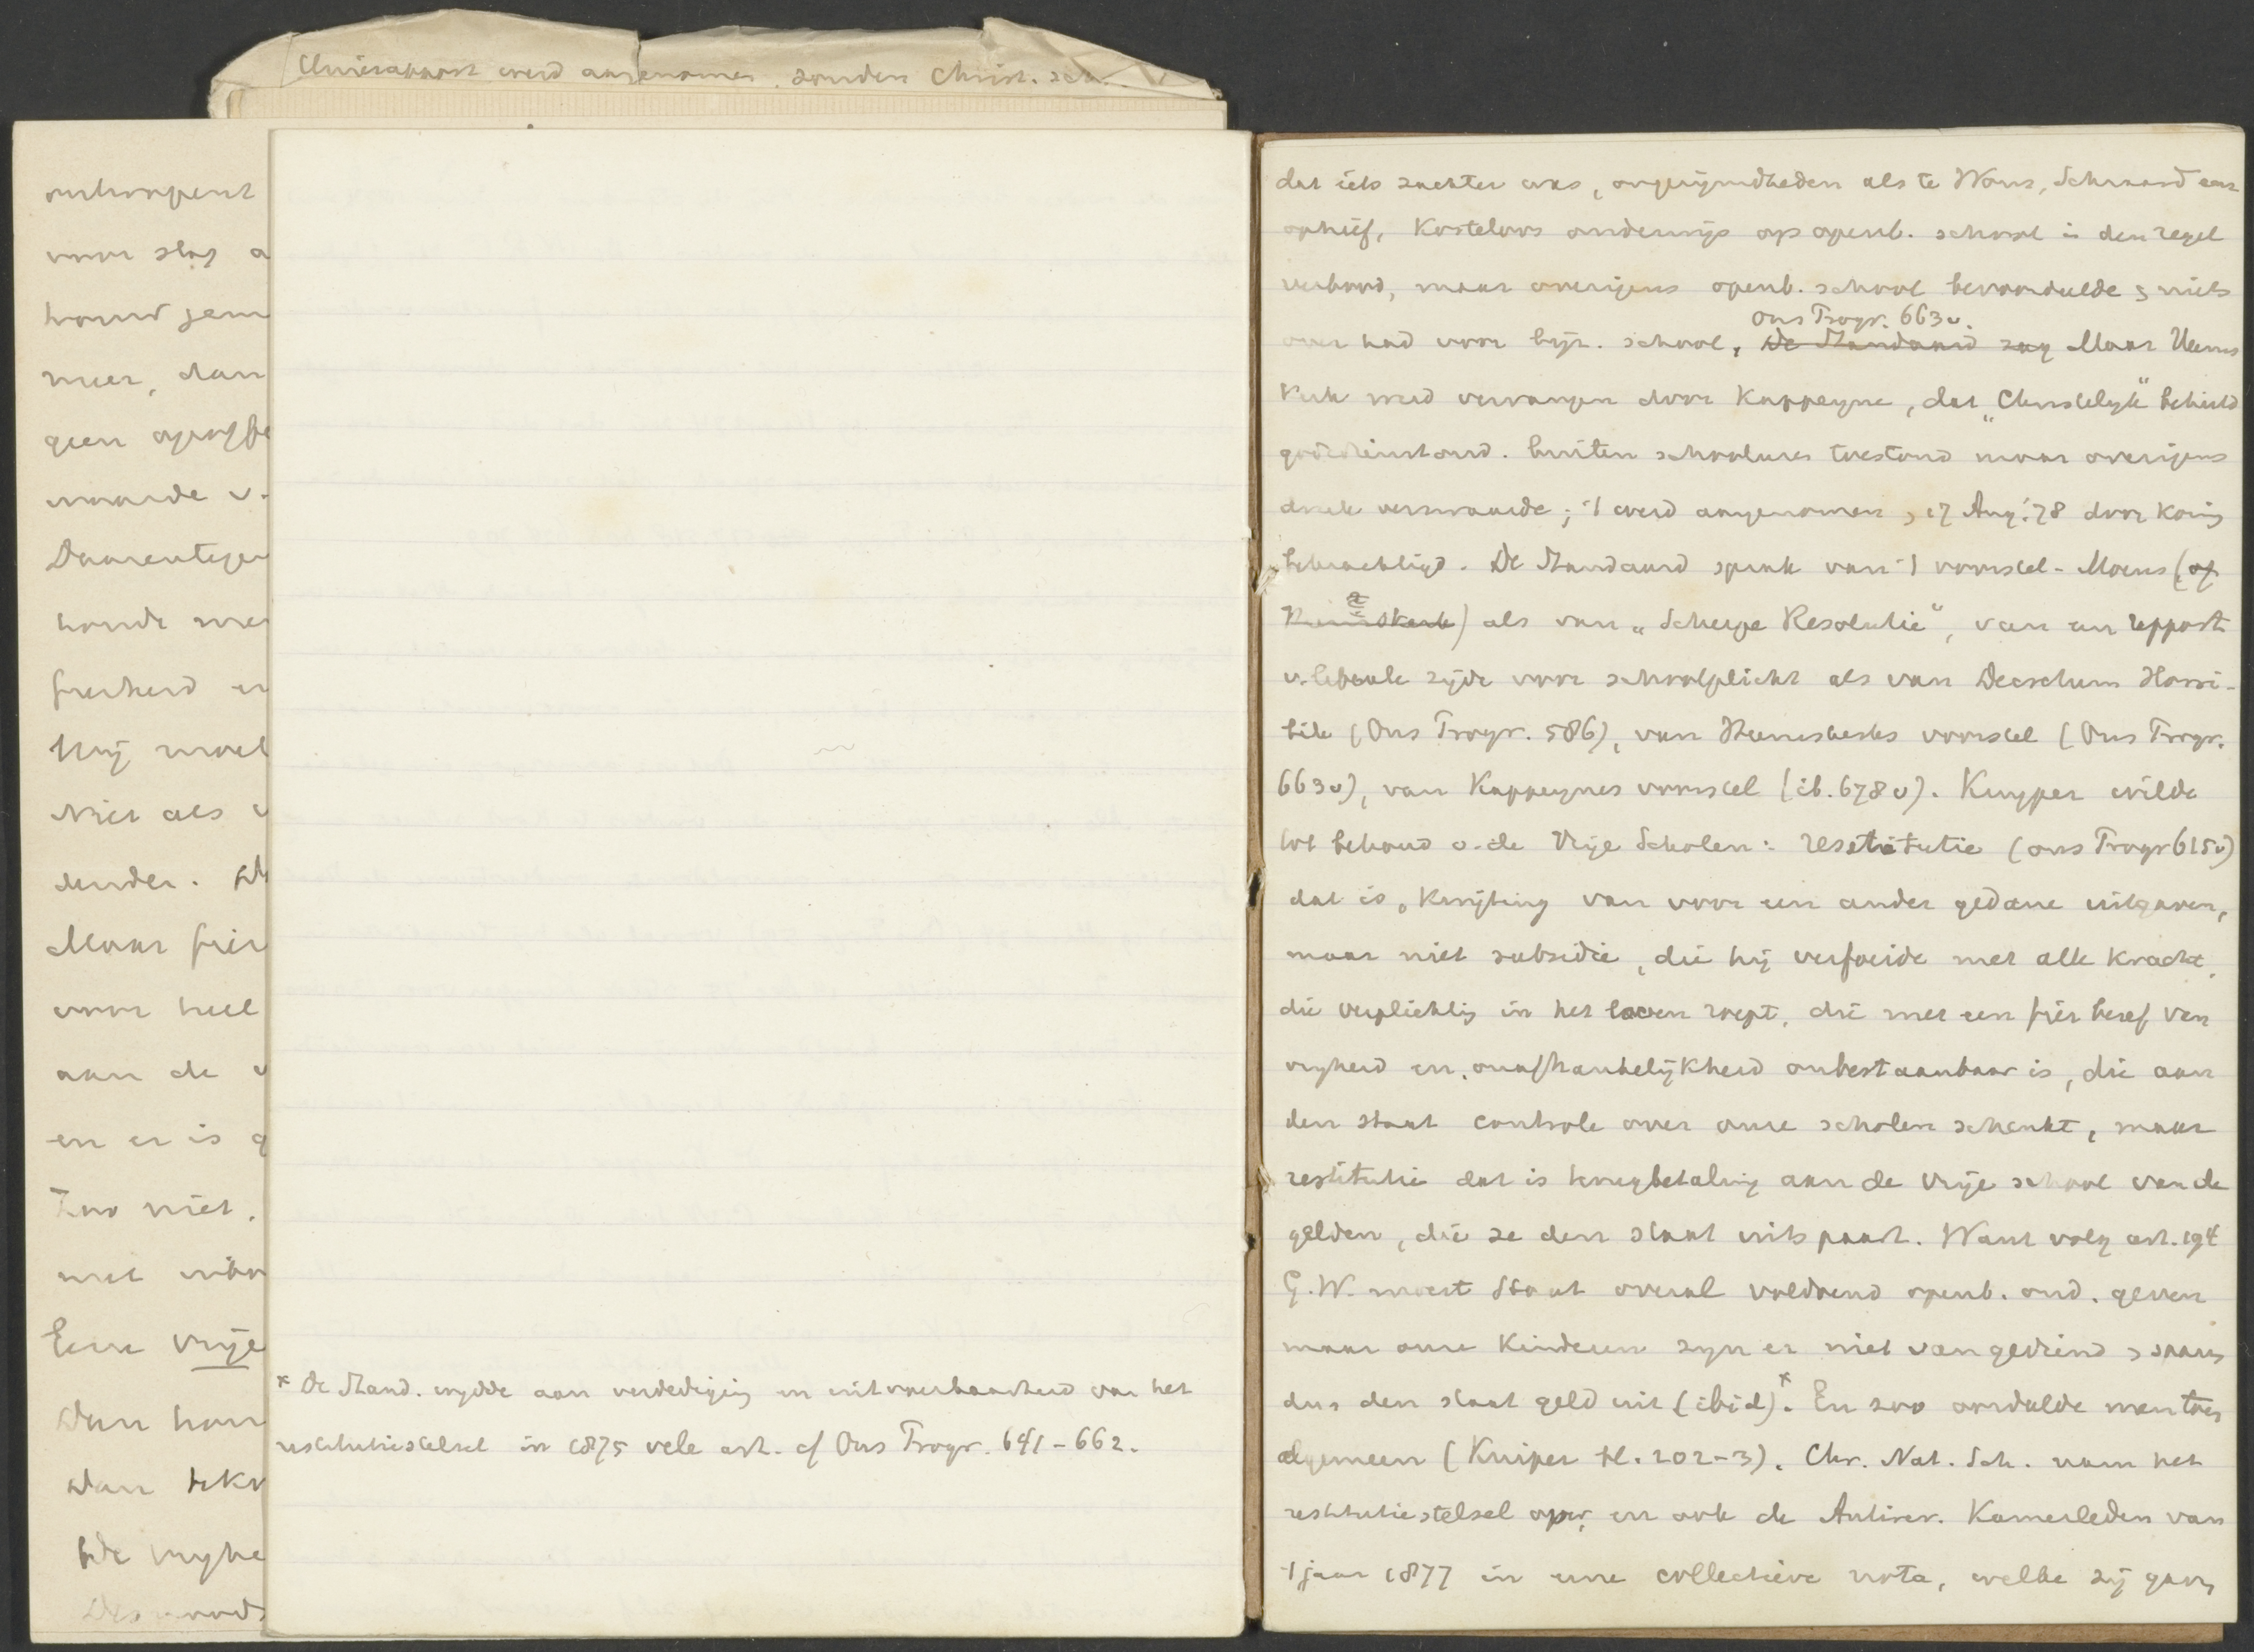 Unierapport werd aangenomen, zonder Christ. sch.
ontwapent
voor slag a
houd jem
meer, dan
geen
waarde v.
Daarentegen
honde me
freiheid en
Hij moet
Niet als v
zender.
Maar fier
voor heel
aan de v
en er is g
Zoo niet.
met
Eene vrije
Dan hou
Dan
De vryhe
Des noods
* De Stand. wydde aan verdediging en uitvoerbaarheid van het
restitutiestelsel in 1875 vele art. cf Ons Progr. 641-662.
dat iets zachter was, ongerijmdheden als te Wons, Schraard enz
ophief, Kosteloos onderwijs op openb. school in den regel
verbood, maar overigens openb. school bevoordeelde & niets
Ons Progr. 663v.
over had voor bijz. school, De Standaard zag Maar Heems
kerk werd vervangen door Kappeyne, dat „Christelijk" behield
godsdienstond. buiten schooluren toestond maar overigens
druk verzwaarde; 't werd aangenomen, 17 Aug. '78 door Koning
bekrachtigd. De Standaard sprak van 't voorstel-Moens (of
Heemskerk) als van „Scherpe Resolutie", van een rapport
v. liberale zijde voor schoolplicht als van Decretum Horri-
bile (Ons Progr. 586), van Heemskerks voorstel (Ons Progr.
663v), van Kappeynes voorstel (ib. 678v). Kuyper wilde
tot behoud v. de Vrije Scholen: restitutie (ons Progr 615v)
dat is, Kwijting van voor een ander gedane uitgaven,
maar niet subsidie, die hij verfoeide met alle kracht,
die verplichting in het leven roept, die met een fier besef van
vryheid en onafhankelijkheid onbestaanbaar is, die aan
den staat controle over onze scholen schenkt, maar
restitutie dat is terugbetaling aan de vrije school van de
gelden, die ze den staat uitspaart. Want volg art. 194
G.W. moest Staat overal voldoend openb. ond. geven
maar onze Kinderen zyn er niet van gediend & sparen
dus den staat geld uit (ibid).* En zoo oordeelde men toen
algemeen (Kuiper bl. 202-3). Chr. Nat. Sch. nam het
restitutiestelsel over, en ook de Antirev. Kamerleden van
't jaar 1877 in eene collectieve nota, welke zij gaven